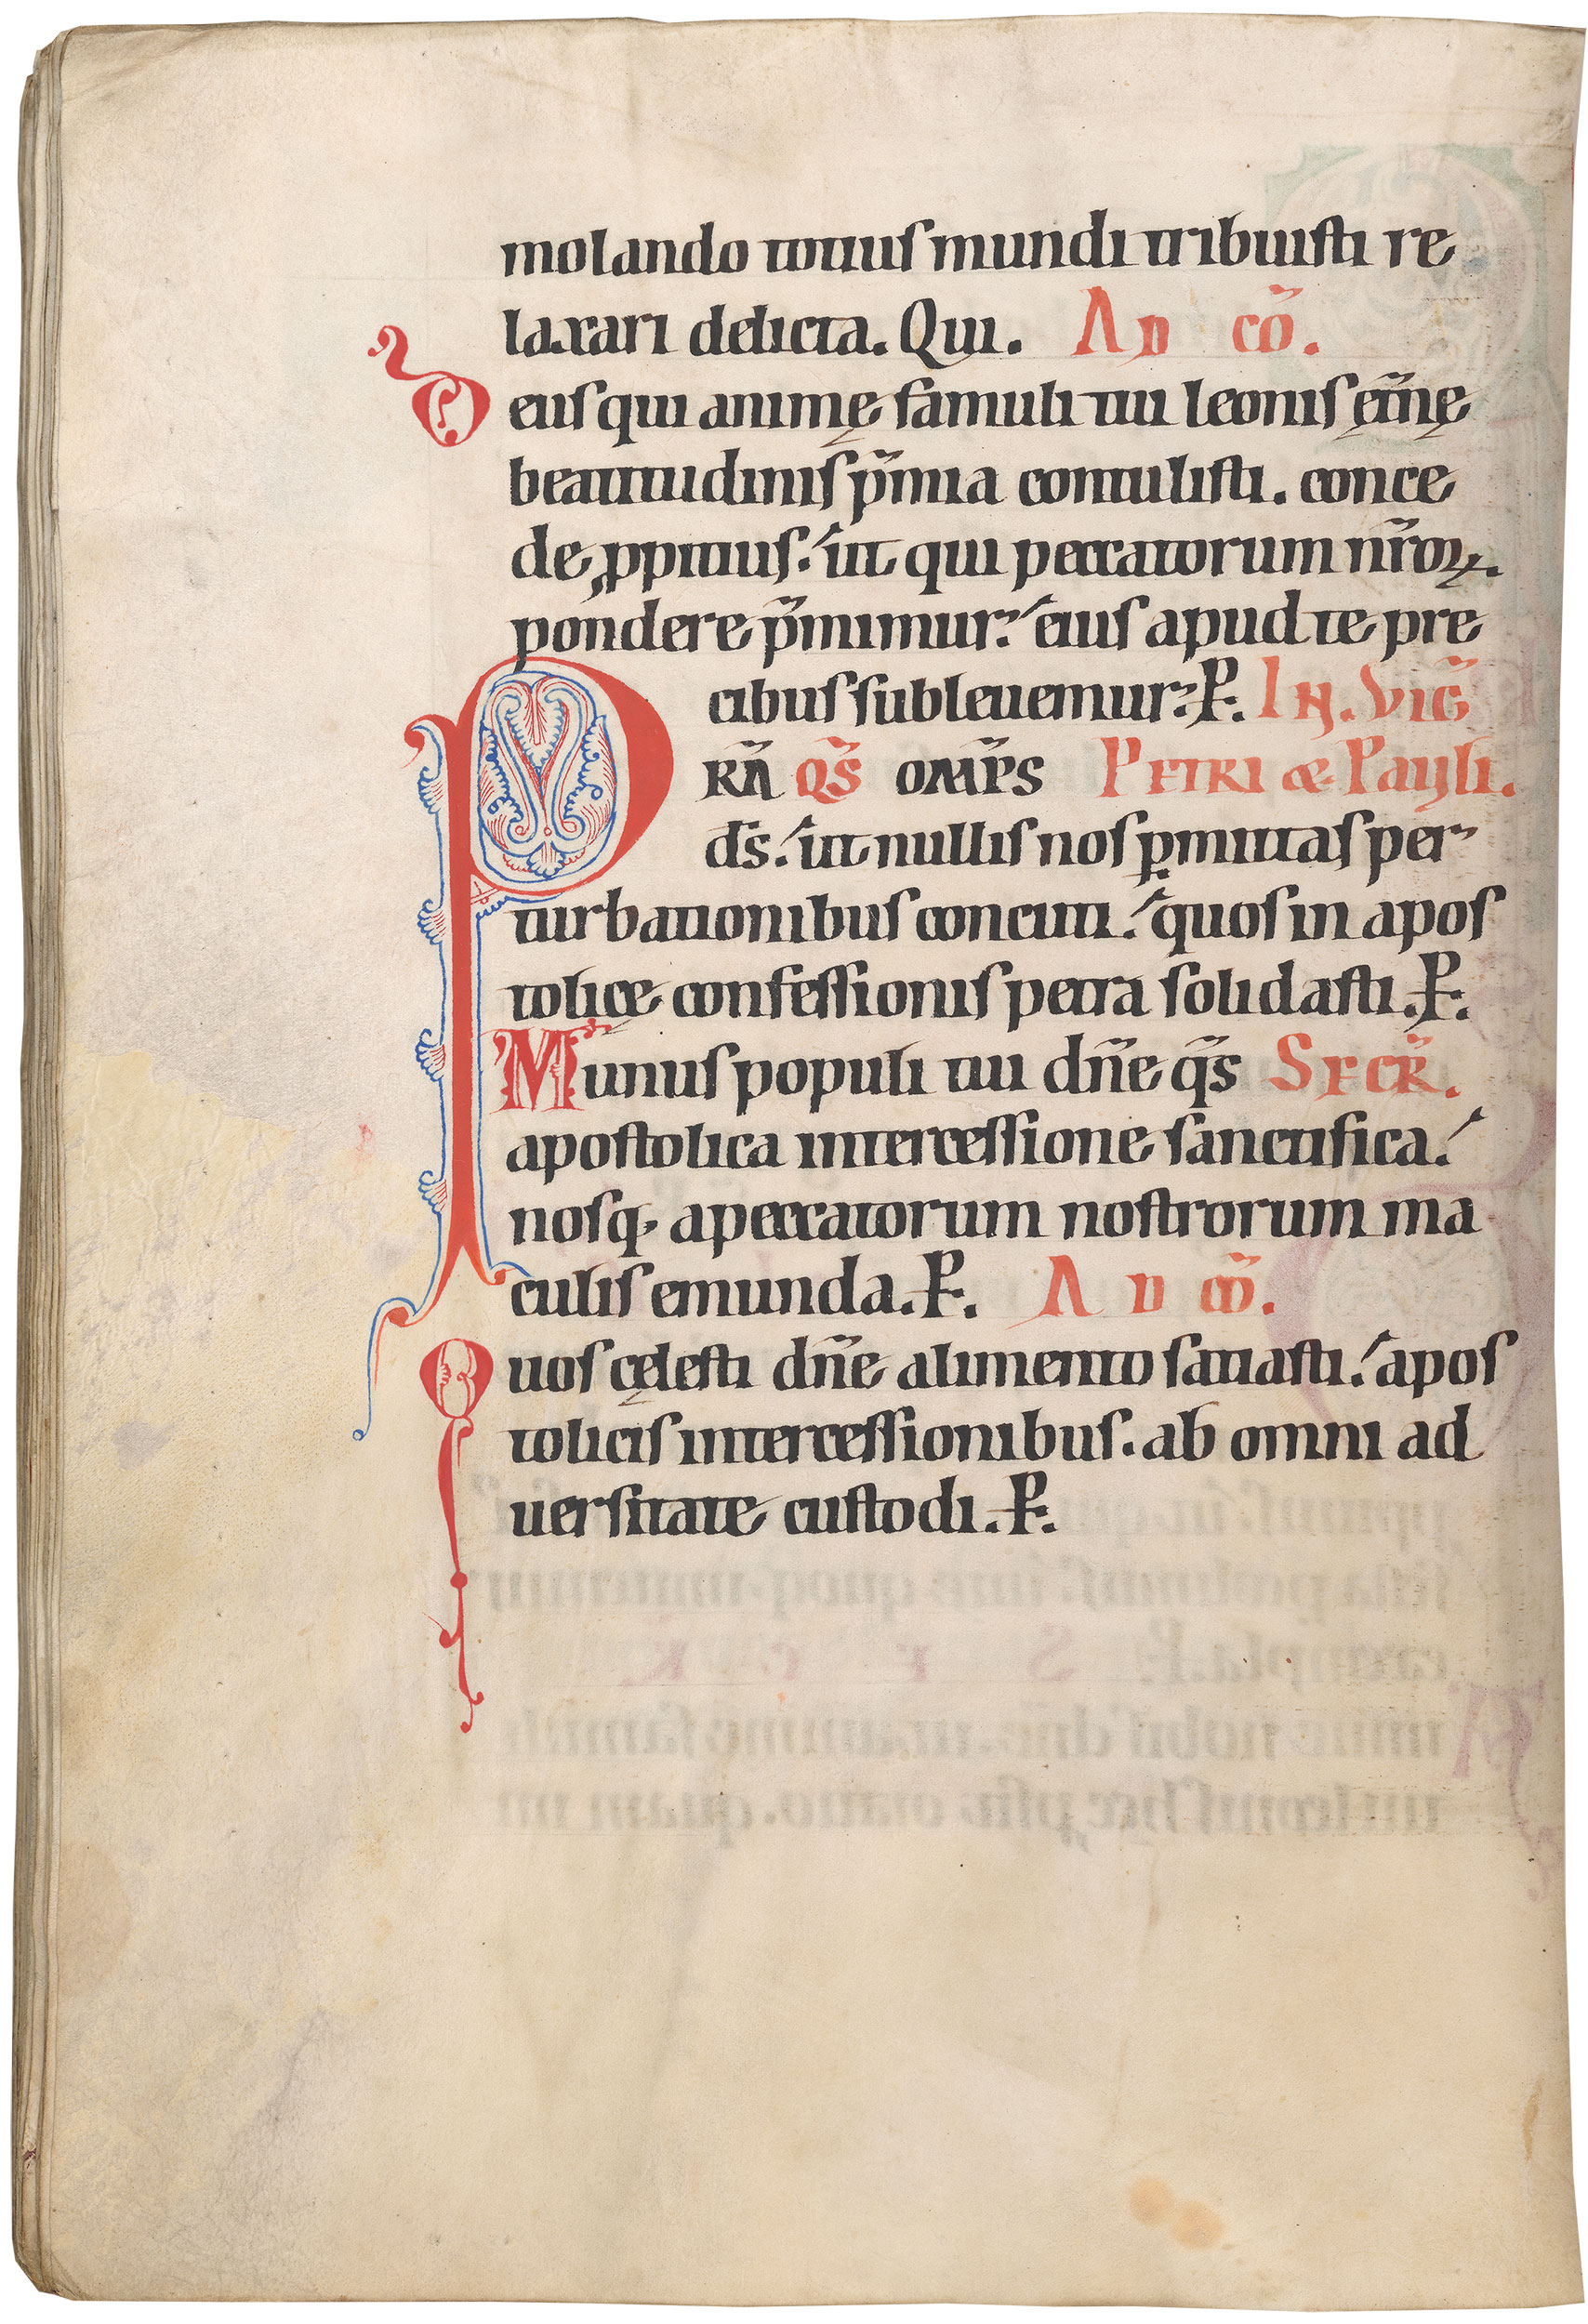 molando totius mundi tribuisti re
laxari delicta. Qui. AD CO̅.
Deus qui animę famuli tui leonis ęt̅nę
beatitudinis p̅mia contulisti. conce
de ꝓpitius. ut qui peccatorum nr̅oꝝ.
pondere p̅mimur. eius apud te pre
cibus subleuemur. P. IN. VIG̅
PRA̅ QS̅ OMP̅S PETRI & PAULI.
ds̅. ut nullis nos ꝑmittas per
turbationibus concuti. quos in apos
tolicę confessionis petra solidasti. P.
Munus populi tui dn̅e qs̅ SECR̅.
apostolica intercessione sanctifica.
nosq. a peccatorum nostrorum ma
culis emunda. P. AD CO̅.
Quos cęlesti dn̅e alimento satiasti. apos
tolicis intercessionibus. ab omni ad
uersitate custodi. P.